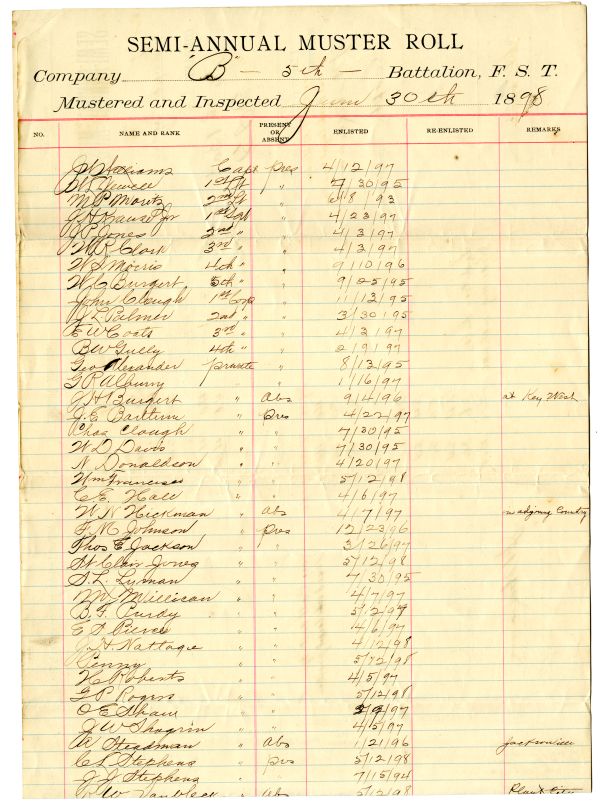 SEMI-ANNUAL MUSTER ROLL
Company "B" - 5th - Battalion, F. S. T.
Mustered and Inspected June 30th 1898
NO. NAME AND RANK PRESENT OR ABSENT ENLISTED RE-ENLISTED REMARKS
Williams Capt pres 4/12/97
1st Lt " 7/30/95
M. P. Moritz 2nd Lt " 6/8/93
Krause Jr 1st Sgt " 4/23/97
Jones 2nd " " 4/3/97
W. R. Clark 3rd " " 4/3/97
Morris 4th " " 9/10/96
W. C. Burgert 5th " " 9/25/95
John Clough 1st Corp " 11/13/95
Palmer 2nd " " 3/30/95
E W Coats 3rd " " 4/3/97
B W Gully 4th " " 2/9/97
Geo Alexander private " 8/13/95
G R Alburry " 1/16/97
J H Burgert " Abs 9/4/96 at Key West
J. E. Bartlum " pres 4/22/97
Chas Clough " " 7/30/95
W D Davis " " 7/30/95
N Donaldson " " 4/20/97
Wm Francisco " " 5/12/98
C. E. Hall " " 4/6/97
W. N Hickman " abs 4/7/97 County
F. M. Johnson " pres 12/23/96
Thos E Jackson " " 3/26/97
St Clair Jones " " 5/12/98
S. L. Lyman " " 7/30/95
Millican " " 4/7/97
B. F. Purdy " " 5/12/97
E D Pierce " " 4/6/97
J. H Nattage " " 4/12/98
Penny " " 5/12/98
Roberts " " 4/5/97
G P Rogers " " 5/12/98
C E Shaw " " 3/9/97
J W Shogrin " " 4/5/97
W Steadman " Abs 1/21/96 Jacksonville
C L Stephens " prs 5/12/98
J. J Stephens " " 7/15/94
W " abs 5/12/98 Plant City